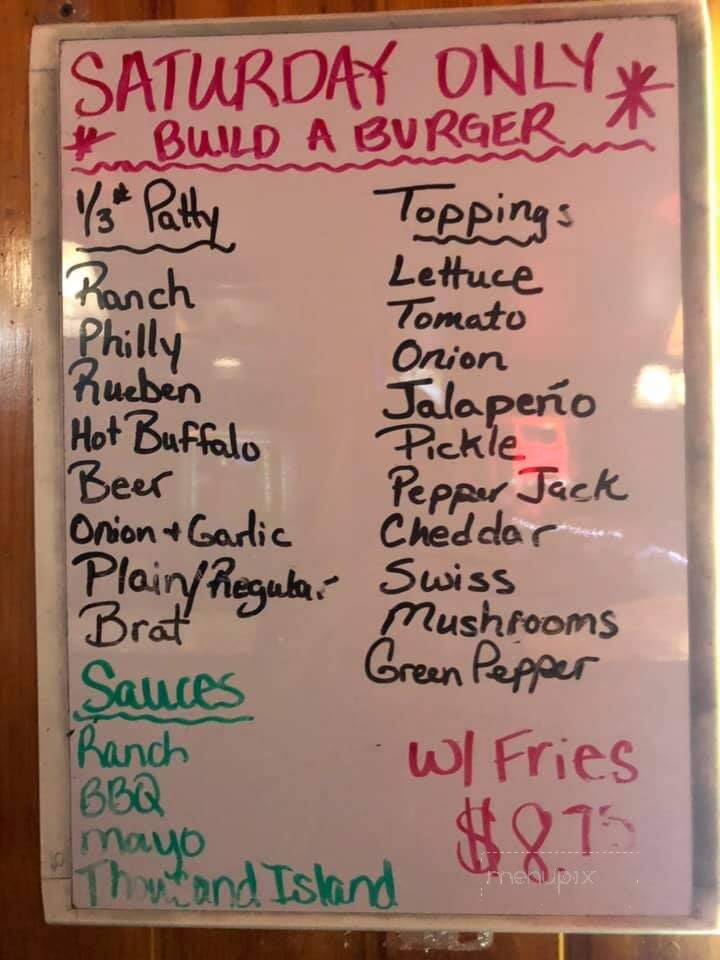 SATURDAY ONLY
* BUILD A BURGER *
1/3# Patty
Ranch
Philly
Rueben
Hot Buffalo
Beer
Onion + Garlic
Plain/Regular
Brat
Sauces
Ranch
BBQ
mayo
Thousand Island
Toppings
Lettuce
Tomato
Onion
Jalapeño
Pickle
Pepper Jack
Cheddar
Swiss
Mushrooms
Green Pepper
W/ Fries
$8.75
menupix